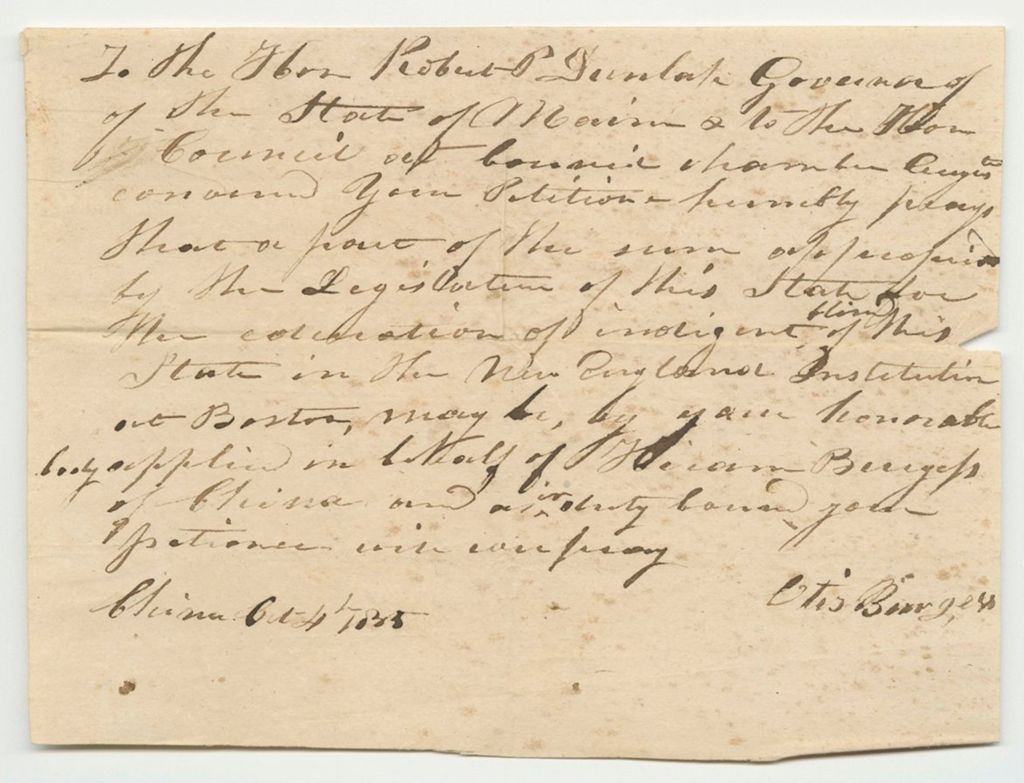 To the Hon Robert P Dunlap Governor of
of the State of Maine & to the Hon
Council at Council chamber Augta
convened Your Petitione humbly prays
that a part of the sum appropri
by the Legislature of this State for
the education of indigent blind of this
State in the New England Institution
at Boston, may be, by your honorable
body applied in behalf of Hiram Burgess
of China and as in duty bound your
petioner will ever pray
China Oct 4th 1835
Otis Burgess